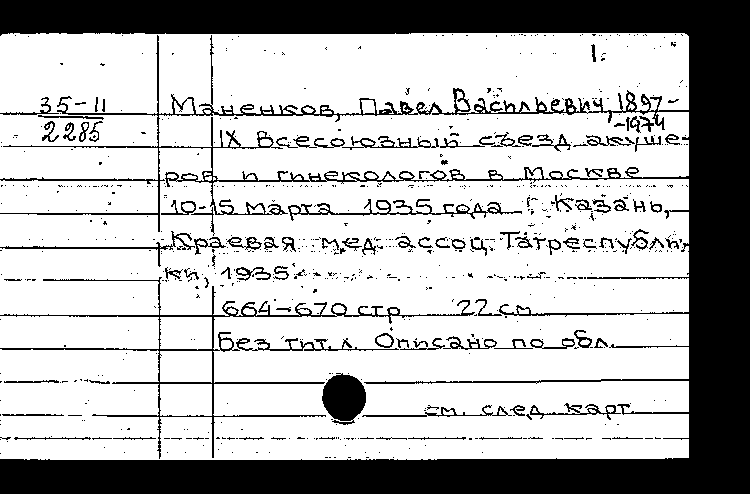 1.
35-11
2285
Маненков, Павел Васильевич, 1897-
-1974
IX Всесоюзный съезд акуше-
ров и гинекологов в Москве
10-15 марта 1935 года. Казань,
Краевая мед. ассоц. Татреспубли-
ки, 1935.
664-670 стр. 22 см.
Без тит. л. Описано по обл.
см. след. карт.